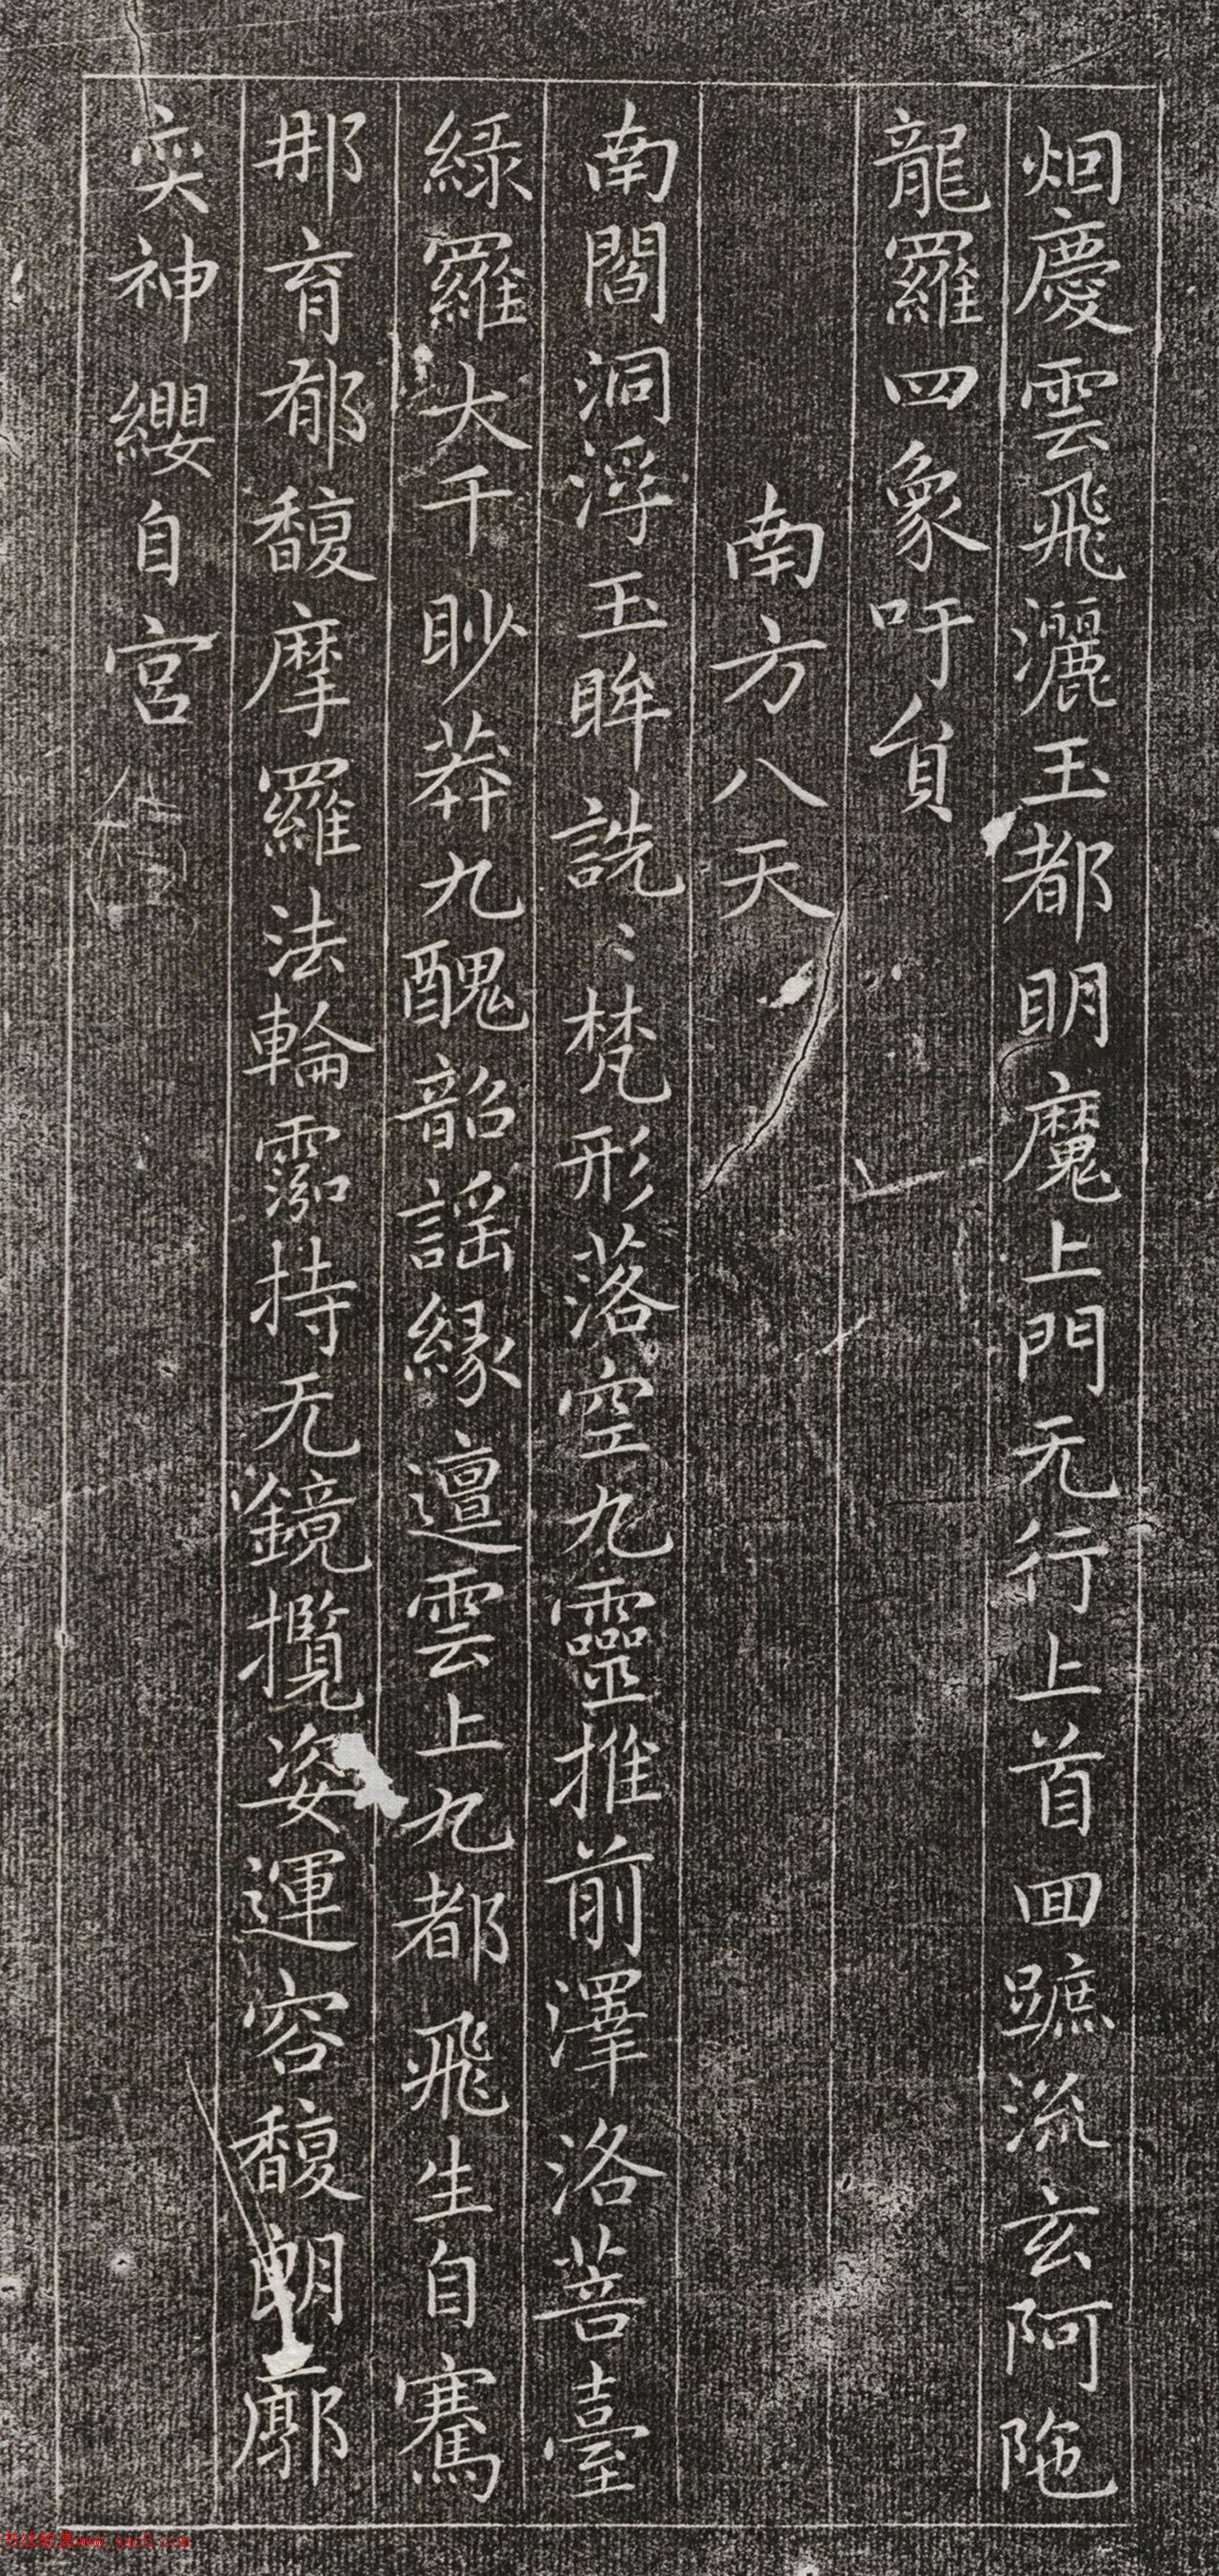 烟慶雲飛灑玉都明魔上門无行上首回蹠流玄阿陁
龍羅四象吁員
南方八天
南閻洞浮玉眸詵〻梵形落空九靈推前澤洛菩臺
綠羅大千眇莽九醜韶謡緣邅雲上九都飛生自騫
那育郁馥摩羅法輪霐持无鏡攬姿運容馥朗廓
奕神纓自宮